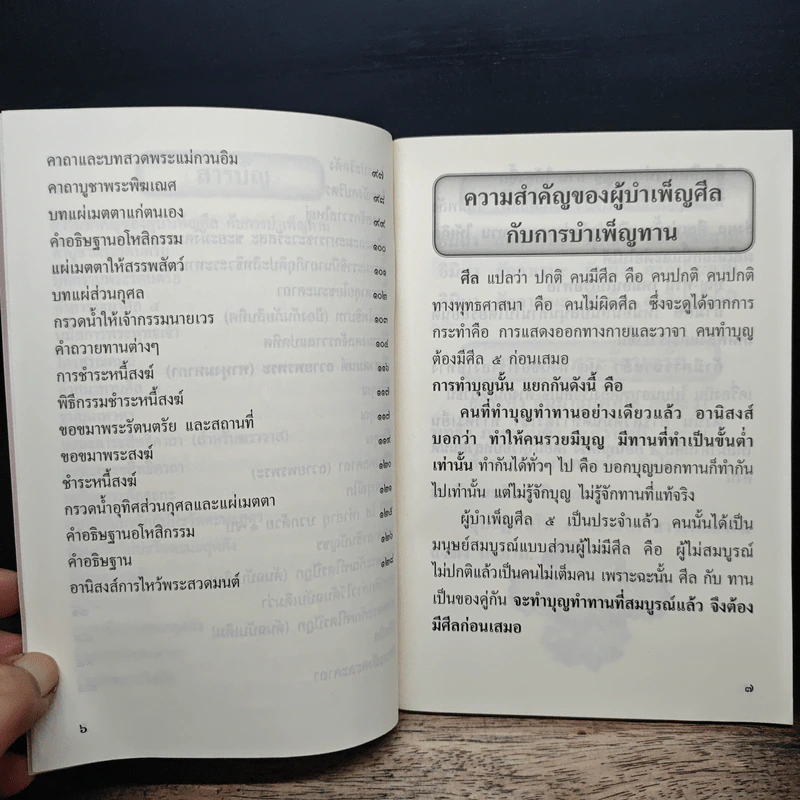 คาถาและบทสวดพระแม่กวนอิม
คาถาบูชาพระพิฆเณศ ๙๗
บทแผ่เมตตาแก่ตนเอง ๙๘
คำอธิษฐานอโหสิกรรม ๙๙
แผ่เมตตาให้สรรพสัตว์ ๑๐๐
บทแผ่ส่วนกุศล ๑๐๑
กรวดน้ำให้เจ้ากรรมนายเวร ๑๐๒
คำถวายทานต่างๆ ๑๐๓
การชำระหนี้สงฆ์ ๑๐๔
พิธีกรรมชำระหนี้สงฆ์ ๑๑๖
ขอขมาพระรัตนตรัย และสถานที่ ๑๑๗
ขอขมาพระสงฆ์ ๑๑๘
ชำระหนี้สงฆ์ ๑๑๙
กรวดน้ำอุทิศส่วนกุศลและแผ่เมตตา ๑๒๐
คำอธิษฐานอโหสิกรรม ๑๒๑
คำอธิษฐาน ๑๒๕
อานิสงส์การไหว้พระสวดมนต์ ๑๒๖
๑๒๘
๖
ความสำคัญของผู้บำเพ็ญศีล
กับการบำเพ็ญทาน
ศีล แปลว่า ปกติ คนมีศีล คือ คนปกติ คนปกติ
ทางพุทธศาสนา คือ คนไม่ผิดศีล ซึ่งจะดูได้จากการ
กระทำคือ การแสดงออกทางกายและวาจา คนทำบุญ
ต้องมีศีล ๕ ก่อนเสมอ
การทำบุญนั้น แยกกันดังนี้ คือ
คนที่ทำบุญทำทานอย่างเดียวแล้ว อานิสงส์
บอกว่า ทำให้คนรวยมีบุญ มีทานที่ทำเป็นขั้นต่ำ
เท่านั้น ทำกันได้ทั่วๆ ไป คือ บอกบุญบอกทานก็ทำกัน
ไปเท่านั้น แต่ไม่รู้จักบุญ ไม่รู้จักทานที่แท้จริง
ผู้บำเพ็ญศีล ๕ เป็นประจำแล้ว คนนั้นได้เป็น
มนุษย์สมบูรณ์แบบส่วนผู้ไม่มีศีล คือ ผู้ไม่สมบูรณ์
ไม่ปกติแล้วเป็นคนไม่เต็มคน เพราะฉะนั้น ศีล กับ ทาน
เป็นของคู่กัน จะทำบุญทำทานที่สมบูรณ์แล้ว จึงต้อง
มีศีลก่อนเสมอ
๗